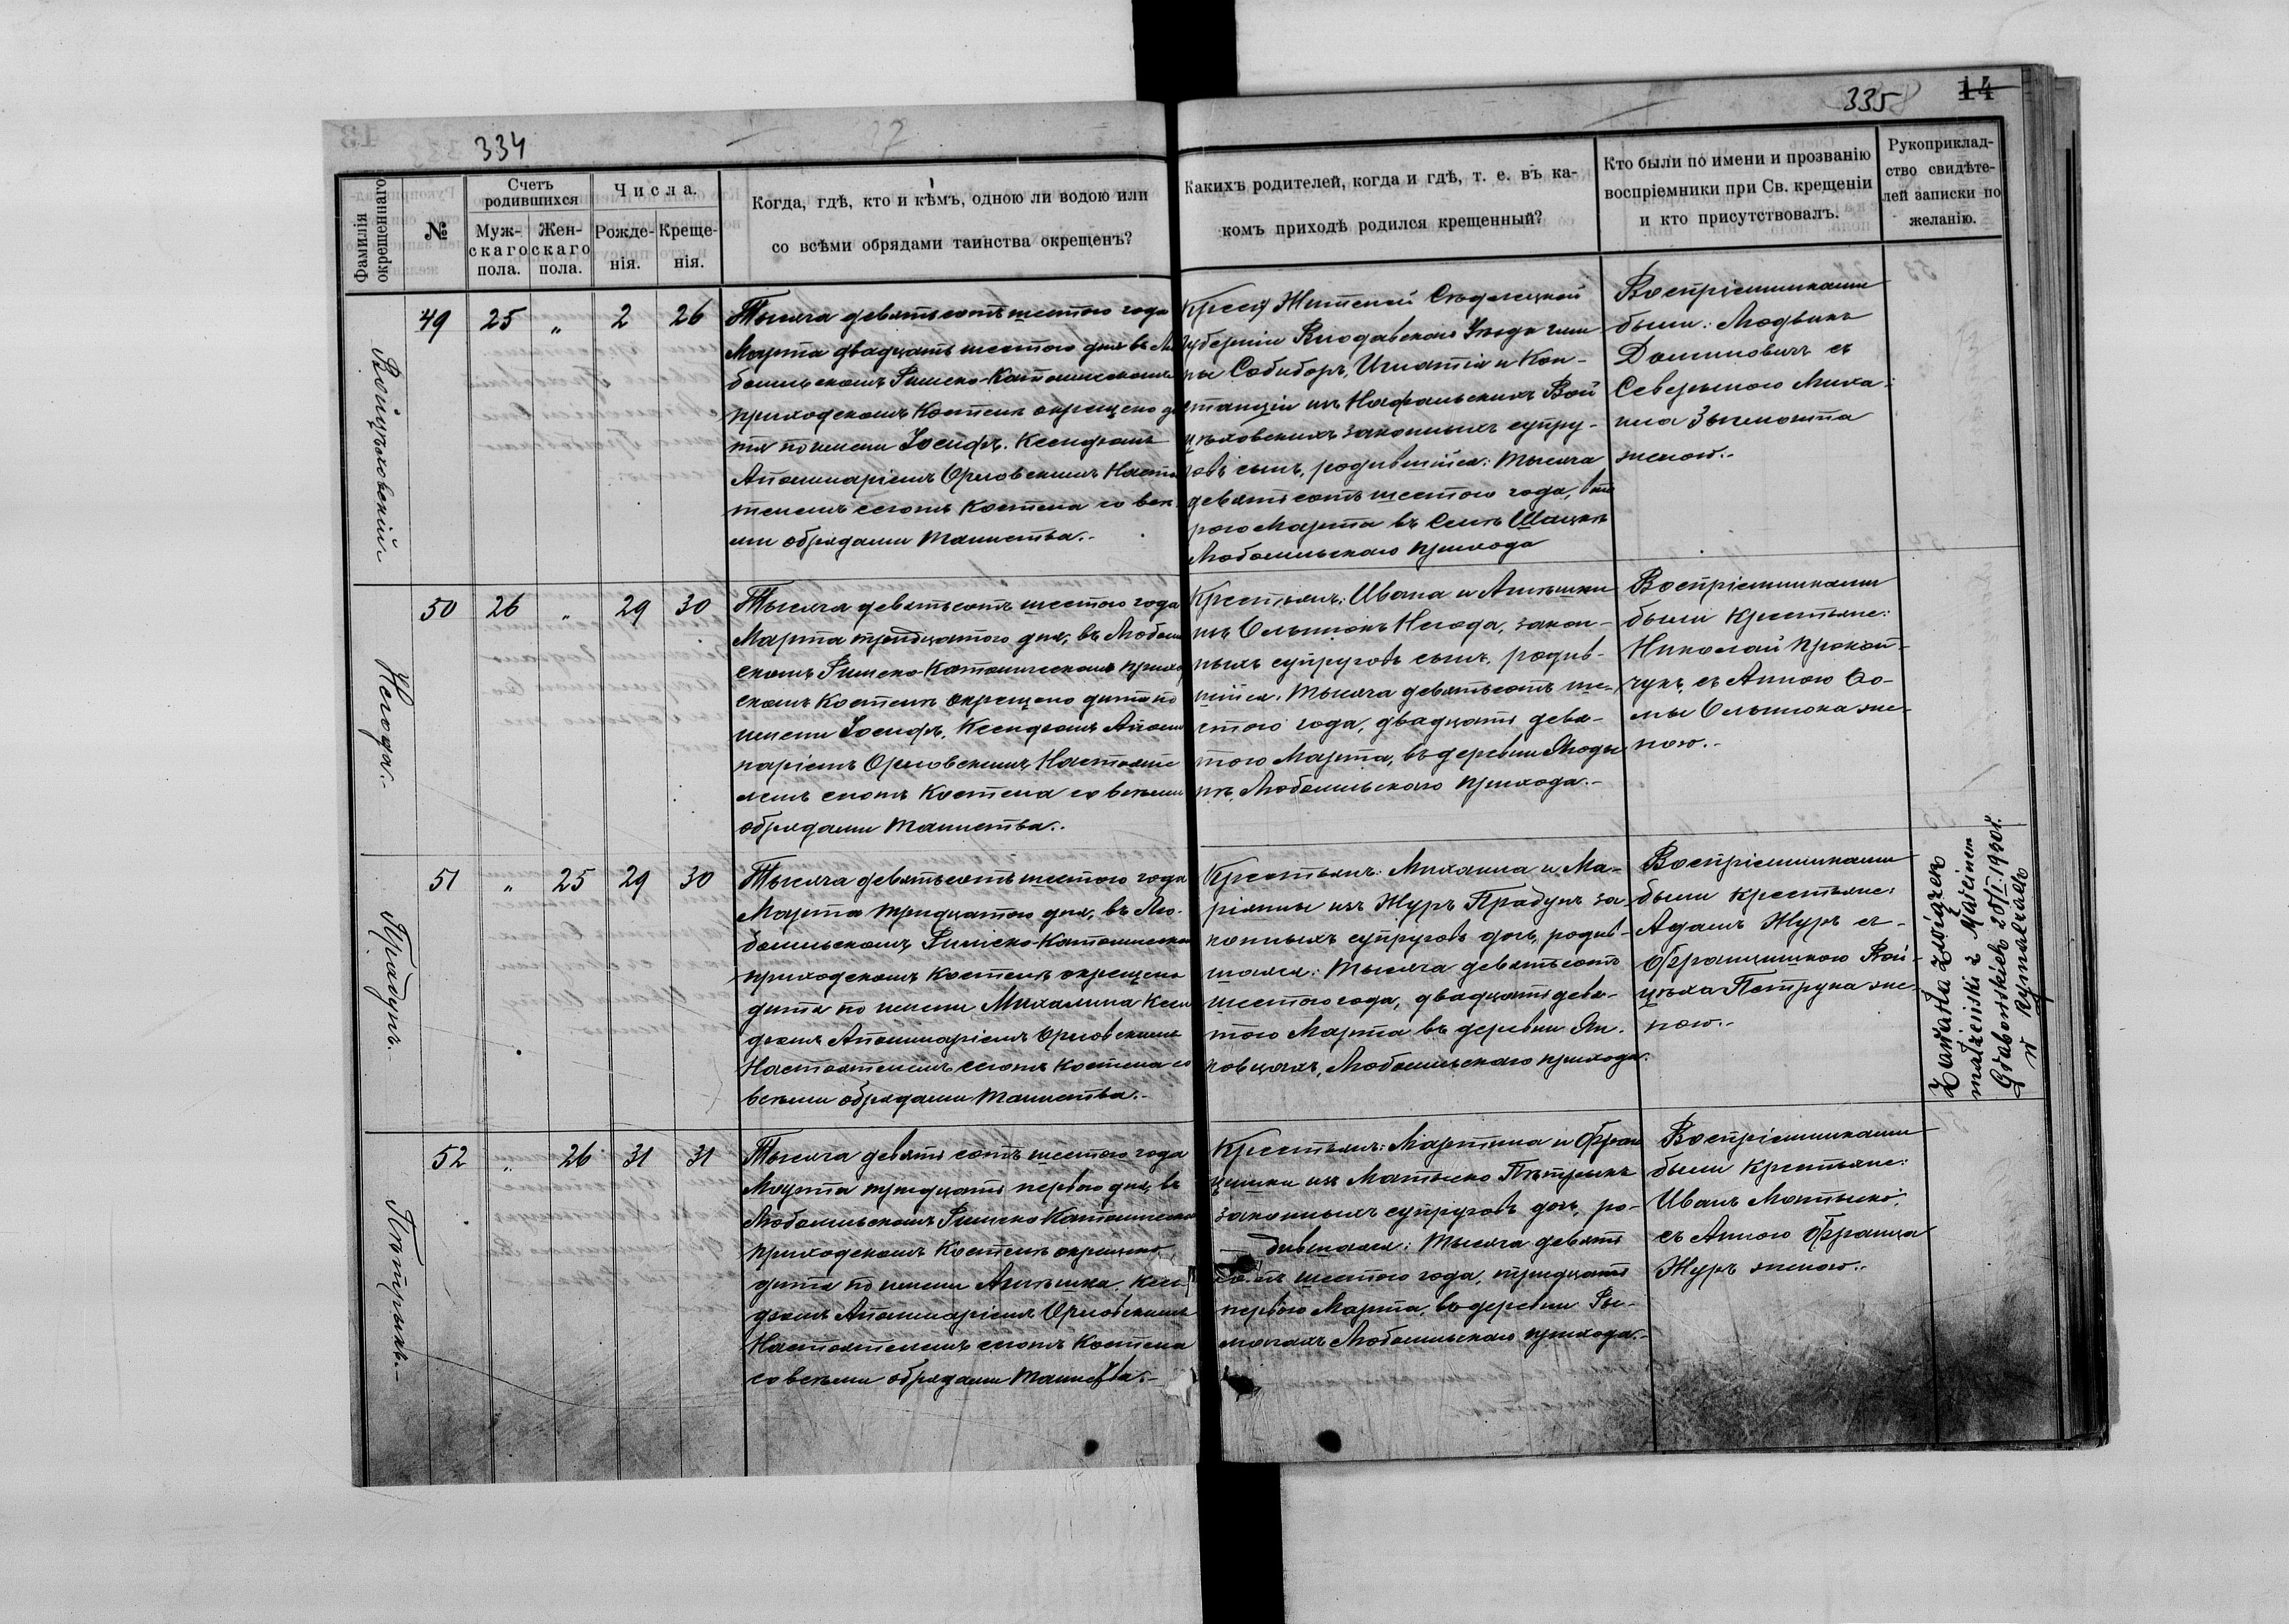 334
335
14
Фамилія окрещеннаго
№
Счетъ родившихся
Муж-скаго пола.
Жен-скаго пола.
Числа.
Рожде-нія.
Креще-нія.
Когда, гдѣ, кто и кѣмъ, одною ли водою или
со всѣми обрядами таинства окрещенъ?
Какихъ родителей, когда и гдѣ, т. е. въ ка-
комъ приходѣ родился крещенный?
Кто были по имени и прозванію
воспріемники при Св. крещеніи
и кто присутствовалъ.
Рукоприклад-
ство свидѣте-
лей записки по
желанію.
Войцѣховскій
49 25 „ 2 26
Тысяча девятьсотъ шестого года
Марта двадцать шестого дня въ Лю
бомльскомъ Римско-Католическомъ
приходскомъ Костелѣ окрещено ди
тя по имени Іосифъ. Ксендзомъ
Аполинаріемъ Орловскимъ Насто
телемъ сего Костела со всѣ
ми обрядами таинства.
Жителей Сѣдлецкой
губерніи Влодавскаго Уѣзда гми
ны Собиборъ, Игнатія и Кон-
станціи изъ Вой
цѣховскихъ законныхъ супру-
говъ сынъ, родившійся: тысяча
девятьсотъ шестого года, вто
рого Марта въ Селѣ Шацкѣ
Любомльскаго прихода
Воспріемниками
были: Людвикъ
съ
Северыною Миха-
ила
женою.
Негода.
50 26 „ 29 30
Тысяча девятьсотъ шестого года
Марта тридцатого дня, въ Любомль
скомъ Римско-Католическомъ приход
скомъ Костелѣ окрещено дитя по
имени Іосифъ. Ксендзомъ Аполи
наріемъ Орловскимъ Настояте
лемъ сего Костела со всѣми
обрядами таинства.
Крестьянъ: Ивана и Агнѣшки
изъ Негода, закон-
ныхъ супруговъ сынъ, родив-
шійся: тысяча девятьсотъ ше-
стого года, двадцать девя-
того Марта, въ деревни
Любомльскаго прихода.
Воспріемниками
были крестьяне:
Николай Прокоп-
чукъ, съ Анною
же-
ною.
Прадунъ.
51 „ 25 29 30
Тысяча девятьсотъ шестого года
Марта тридцатого дня, въ Лю-
бомльскомъ Римско-Католическомъ
приходскомъ Костелѣ окрещено
дитя по имени Михалина Ксен
дзомъ Аполинаріемъ Орловскимъ
Настоятелемъ сего Костела со
всѣми обрядами таинства.
Крестьянъ: Михаила и Ма-
ріянны изъ Журъ Прадунъ за-
конныхъ супруговъ дочь, родив-
шаяся: тысяча девятьсотъ
шестого года, двадцать девя-
того Марта въ деревни
Любомльскаго прихода.
Воспріемниками
были крестьяне:
Адамъ Журъ съ
Францишкою Вой-
цѣха Петрука же-
ною.
Zawarła związek
małżeński z Marcinem
Grabowskich 1930 r.
w Rymaczach
Пѣтрыкъ.
52 „ 26 31 31
Тысяча девятьсотъ шестого года
Марта тридцать перваго дня, въ
Любомльскомъ Римско Католическомъ
приходскомъ Костелѣ окрещено
дитя по имени Агнѣшка. Ксен
дзомъ Аполинаріемъ Орловскимъ
Настоятелемъ сего Костела
со всѣми обрядами таинства.
Крестьянъ: Мартина и Фран
цишки изъ Матыско Пѣтрыкъ
законныхъ супруговъ дочь, ро-
дившаяся: тысяча девять
сотъ шестого года, тридцать
перваго Марта, въ деревни Ры-
мачахъ Любомльскаго прихода.
Воспріемниками
были крестьяне:
Иванъ Матыско,
съ Анною Франца
Журъ женою.